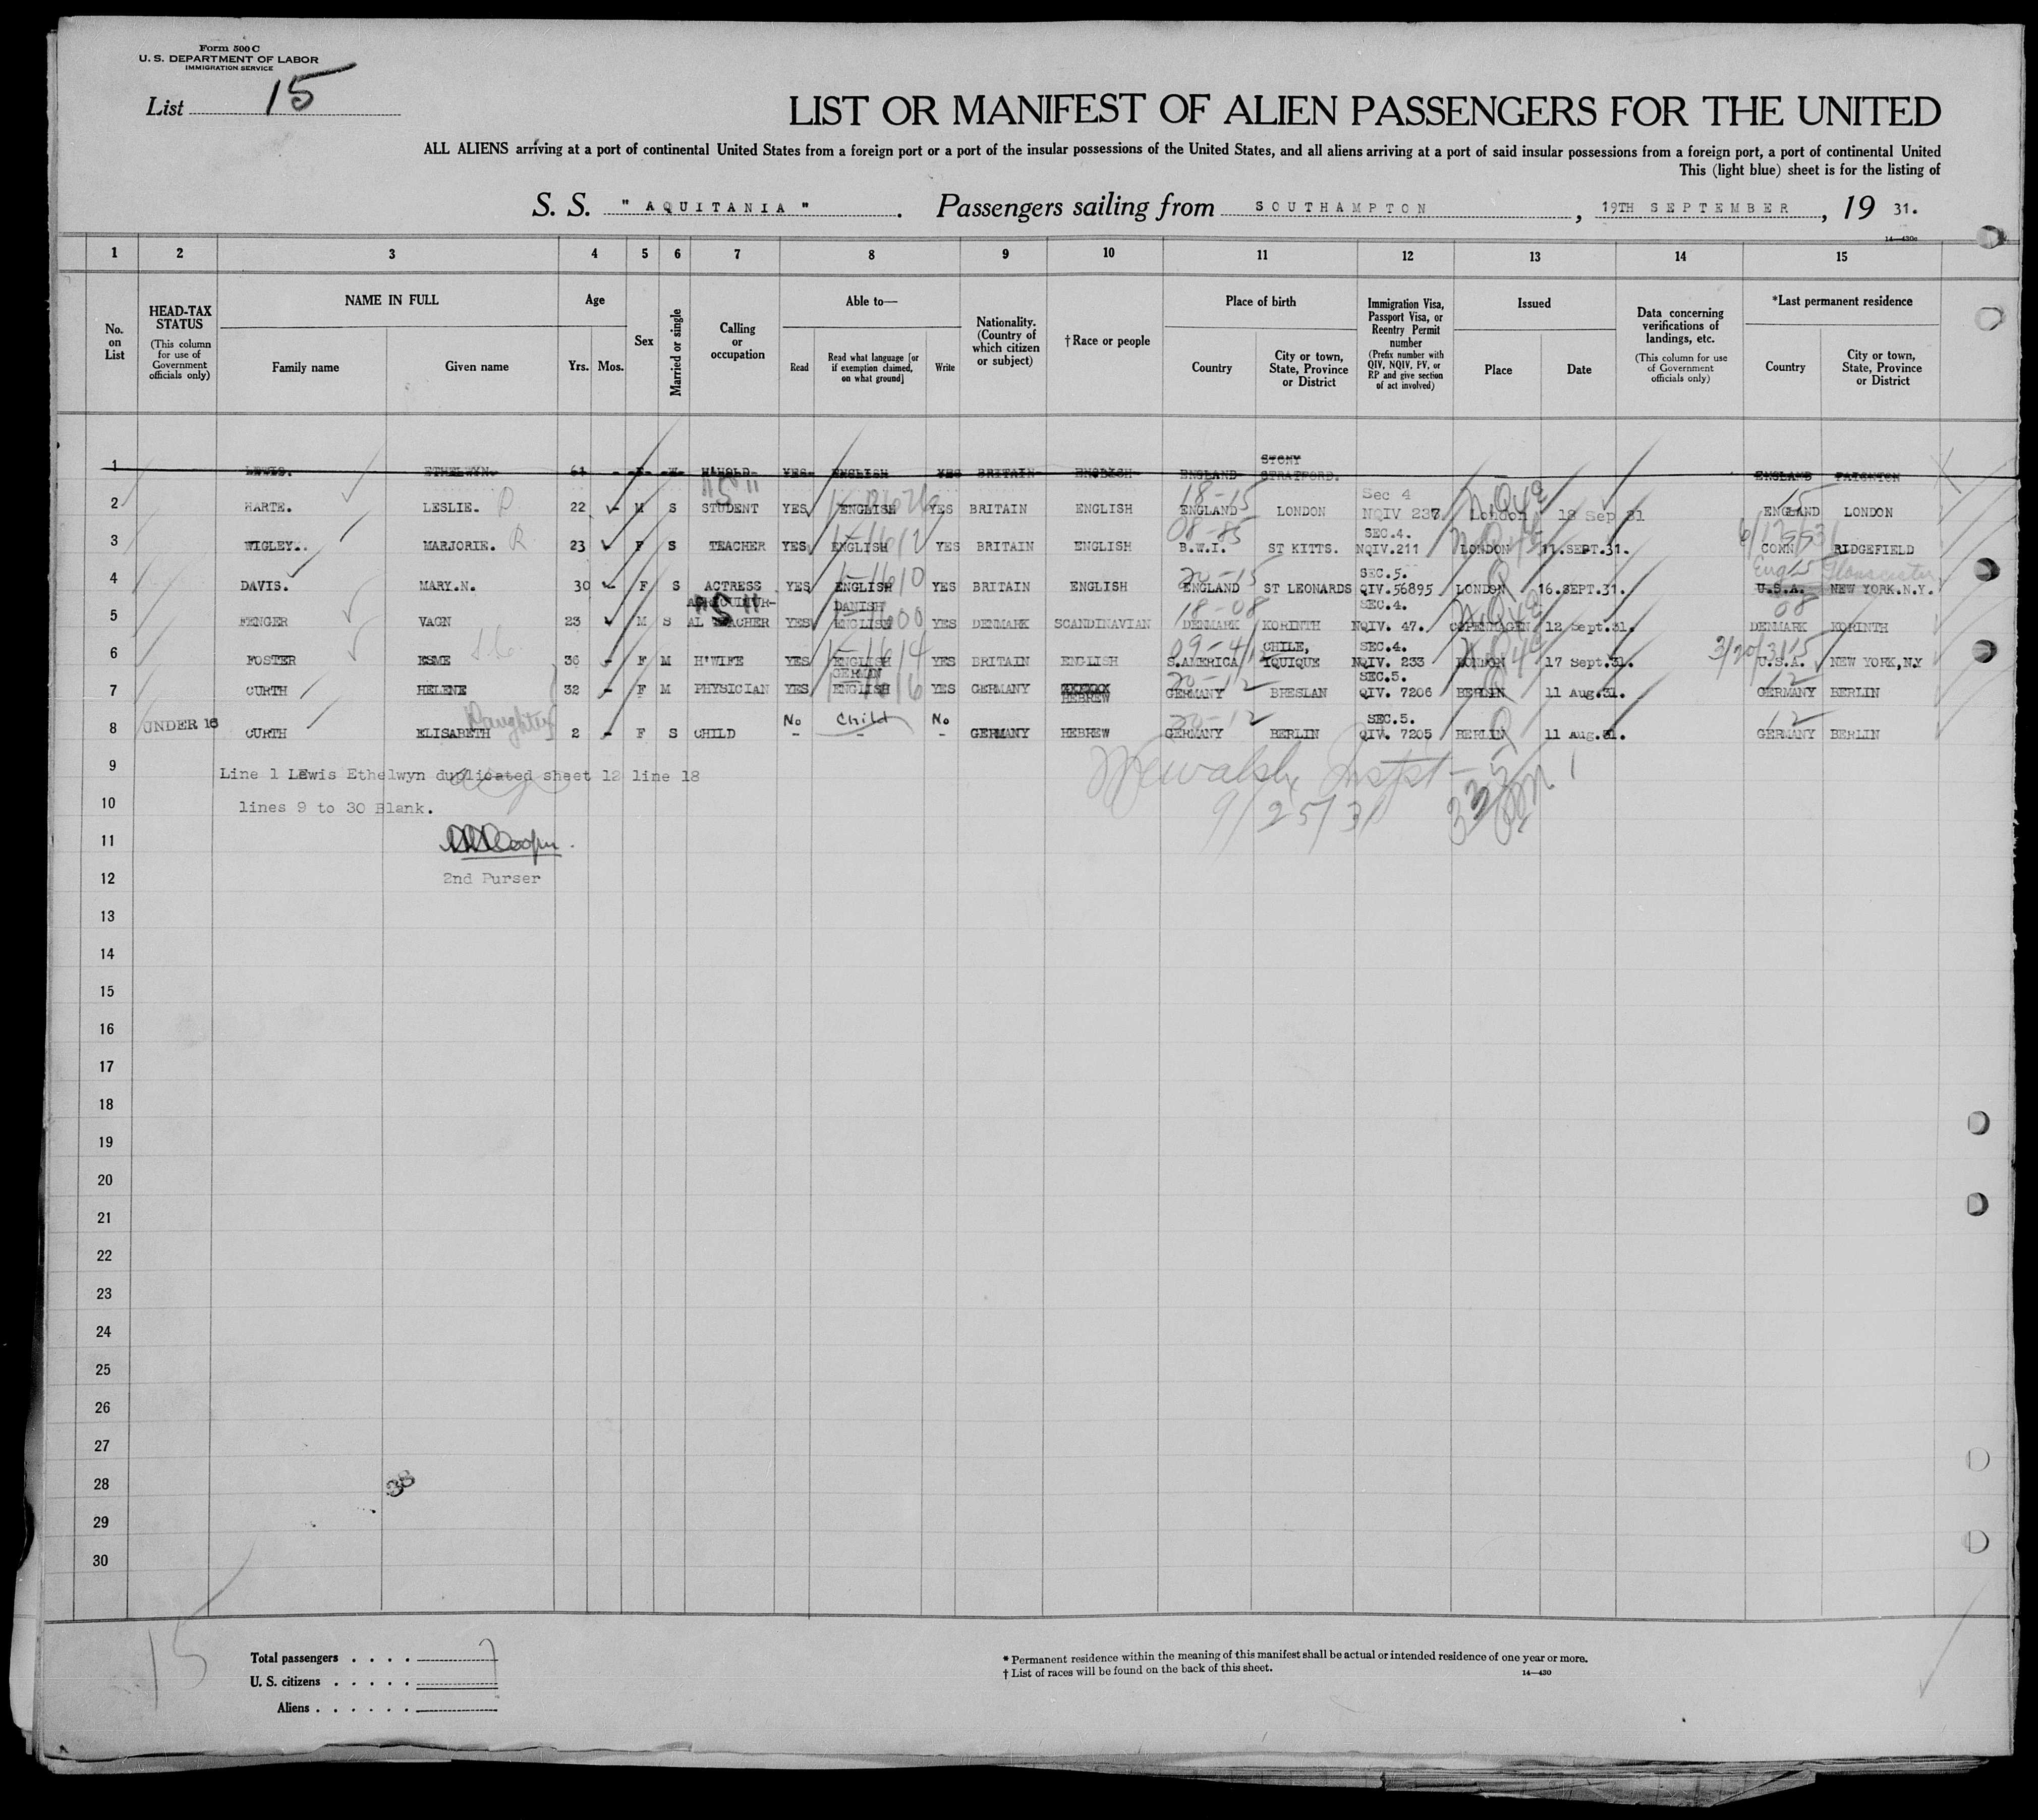 Form 500 C
U. S. DEPARTMENT OF LABOR
IMMIGRATION SERVICE
List 15
LIST OR MANIFEST OF ALIEN PASSENGERS FOR THE UNITED
ALL ALIENS arriving at a port of continental United States from a foreign port or a port of the insular possessions of the United States, and all aliens arriving at a port of said insular possessions from a foreign port, a port of continental United
This (light blue) sheet is for the listing of
S. S. "AQUITANIA". Passengers sailing from SOUTHAMPTON, 19TH SEPTEMBER, 19 31.
14—430c
1 2 3 4 5 6 7 8 9 10 11 12 13 14 15
No. on List
HEAD-TAX STATUS (This column for use of Government officials only)
NAME IN FULL
Family name Given name
Age
Yrs. Mos.
Sex
Married or single
Calling or occupation
Able to—
Read Read what language [or if exemption claimed, on what ground] Write
Nationality. (Country of which citizen or subject)
†Race or people
Place of birth
Country City or town, State, Province or District
Immigration Visa, Passport Visa, or Reentry Permit number (Prefix number with QIV, NQIV, PV, or RP and give section of act involved)
Issued
Place Date
Data concerning verifications of landings, etc. (This column for use of Government officials only)
*Last permanent residence
Country City or town, State, Province or District
1 LEWIS. ETHELWYN. 61 - F W H'HOLD YES ENGLISH YES BRITAIN ENGLISH ENGLAND STONY STRATFORD. ENGLAND PAIGNTON
2 HARTE. LESLIE. R 22 - M S "S" STUDENT YES ENGLISH YES BRITAIN ENGLISH 18-15 ENGLAND LONDON Sec 4 NQIV 237 London 18 Sep 31 15 ENGLAND LONDON
3 WIGLEY. MARJORIE. R 23 F S TEACHER YES ENGLISH YES BRITAIN ENGLISH 08-85 B.W.I. ST KITTS. SEC.4. NQIV.211 LONDON 11.SEPT.31. CONN RIDGEFIELD
4 DAVIS. MARY.N. 30 - F S ACTRESS YES ENGLISH YES BRITAIN ENGLISH 20-15 ENGLAND ST LEONARDS SEC.5. QIV.56895 LONDON Q 16.SEPT.31. Eng 15 Gloucester U.S.A. NEW YORK.N.Y.
5 FENGER VAGN 23 M S "S" AGRICULTUR-AL TEACHER YES DANISH ENGLISH YES DENMARK SCANDINAVIAN 18-08 DENMARK KORINTH SEC.4. NQIV. 47. COPENHAGEN 12 Sept.31. 08 DENMARK KORINTH
6 FOSTER ESME 36 - F M H'WIFE YES ENGLISH YES BRITAIN ENGLISH 09-41 S.AMERICA CHILE, IQUIQUE SEC.4. NQIV. 233 LONDON 17 Sept.31. 3/20/31 U.S.A. NEW YORK,N.Y
7 CURTH HELENE 32 - F M PHYSICIAN YES GERMAN ENGLISH YES GERMANY HEBREW 20-12 GERMANY BRESLAN SEC.5. QIV. 7206 BERLIN Q 11 Aug.31. 12 GERMANY BERLIN
8 UNDER 16 CURTH ELISABETH Daughter 2 - F S CHILD No - Child - No - GERMANY HEBREW 20-12 GERMANY BERLIN SEC.5. QIV. 7205 BERLIN Q 11 Aug.31. 12 GERMANY BERLIN
9 Line 1 LEwis Ethelwyn duplicated sheet 12 line 18
10 lines 9 to 30 Blank.
9/25/31
11
12 2nd Purser
13
14
15
16
17
18
19
20
21
22
23
24
25
26
27
28 38
29
30
15
Total passengers . . . . 7
U. S. citizens . . . . .
Aliens . . . . . .
* Permanent residence within the meaning of this manifest shall be actual or intended residence of one year or more.
† List of races will be found on the back of this sheet.
14—430